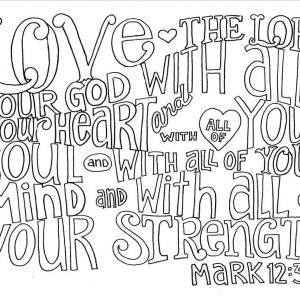 LOVE THE LOR
YOUR GOD WITH all
your HEART and WITH ALL OF YOU
SOUL and WITH all OF YOU
MIND and with all O
YOUR STRENGT
MARK 12:3